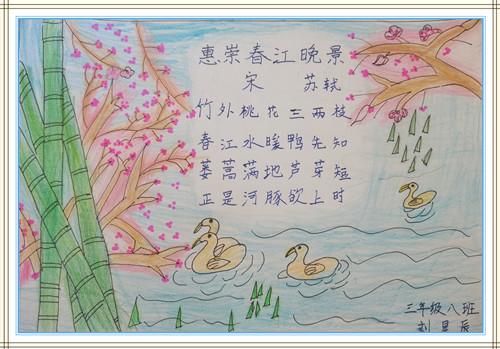 惠崇春江晚景
宋 苏轼
竹外桃花三两枝
春江水暖鸭先知
蒌蒿满地芦芽短
正是河豚欲上时
三年级八班
刘昱辰